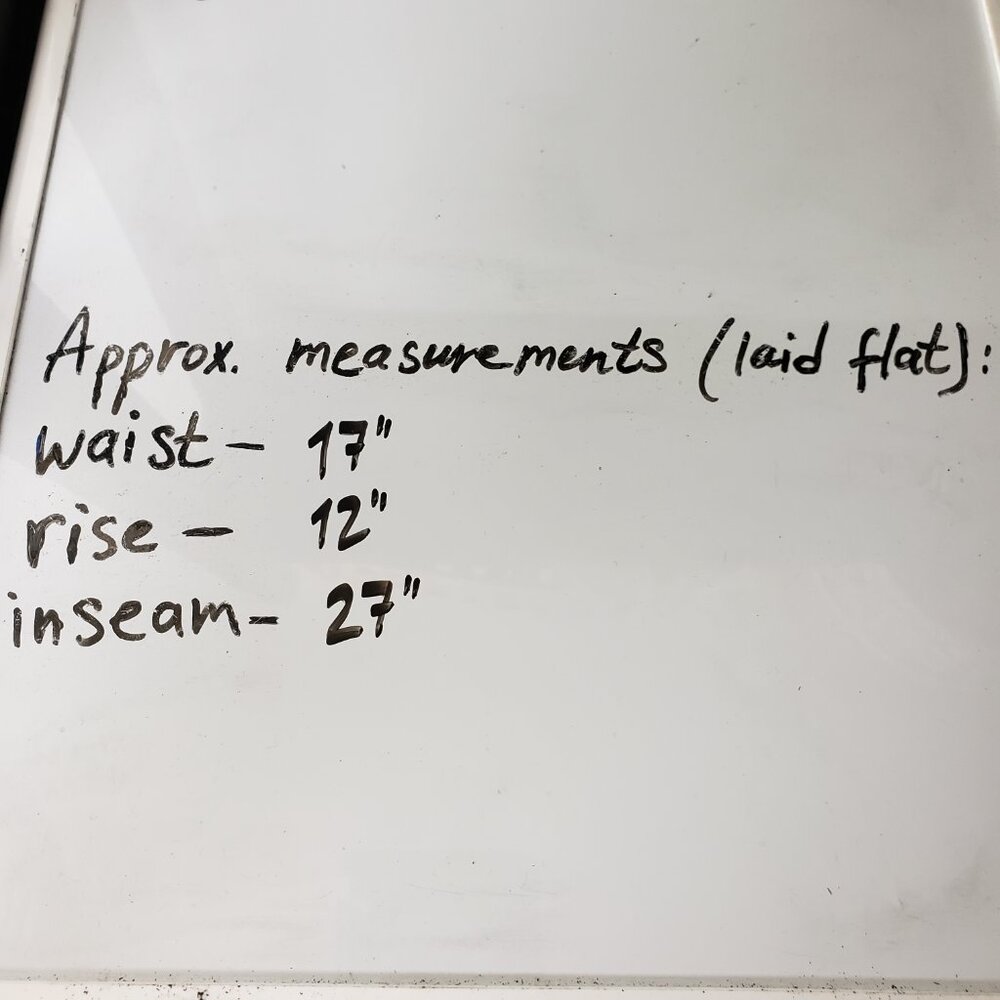 Approx. measurements (laid flat):
waist - 17"
rise - 12"
inseam - 27"